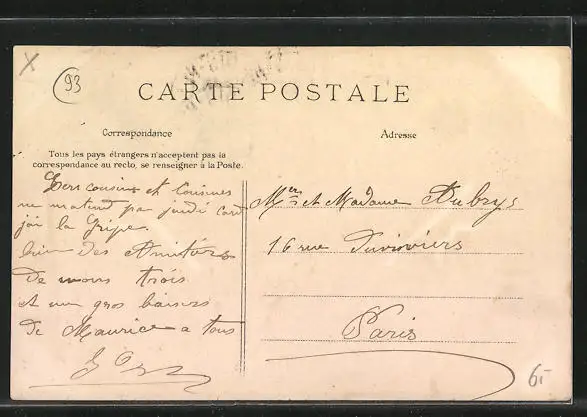 X
93
CARTE POSTALE
Correspondance
Adresse
Tous les pays étrangers n'acceptent pas la
correspondance au recto, se renseigner à la Poste.
cousins et cousines
ne pas jeudi car
jai la Gripe
bien des Amitiés
de nous trois
et un gros baisers
de Maurice a tous
Mr et Madame Aubrys
16 rue
Paris
6,-